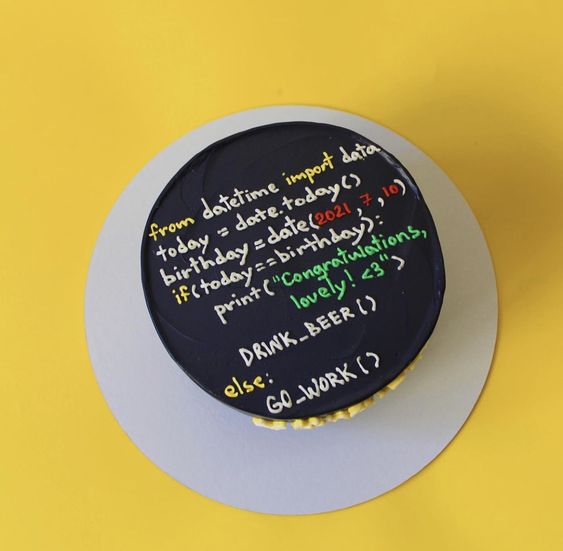 from datetime import data
today = date.today()
birthday =date(2021, 7, 10)
if(today==birthday):
print("Congratulations,
lovely! <3")
DRINK_BEER()
else:
GO_WORK()